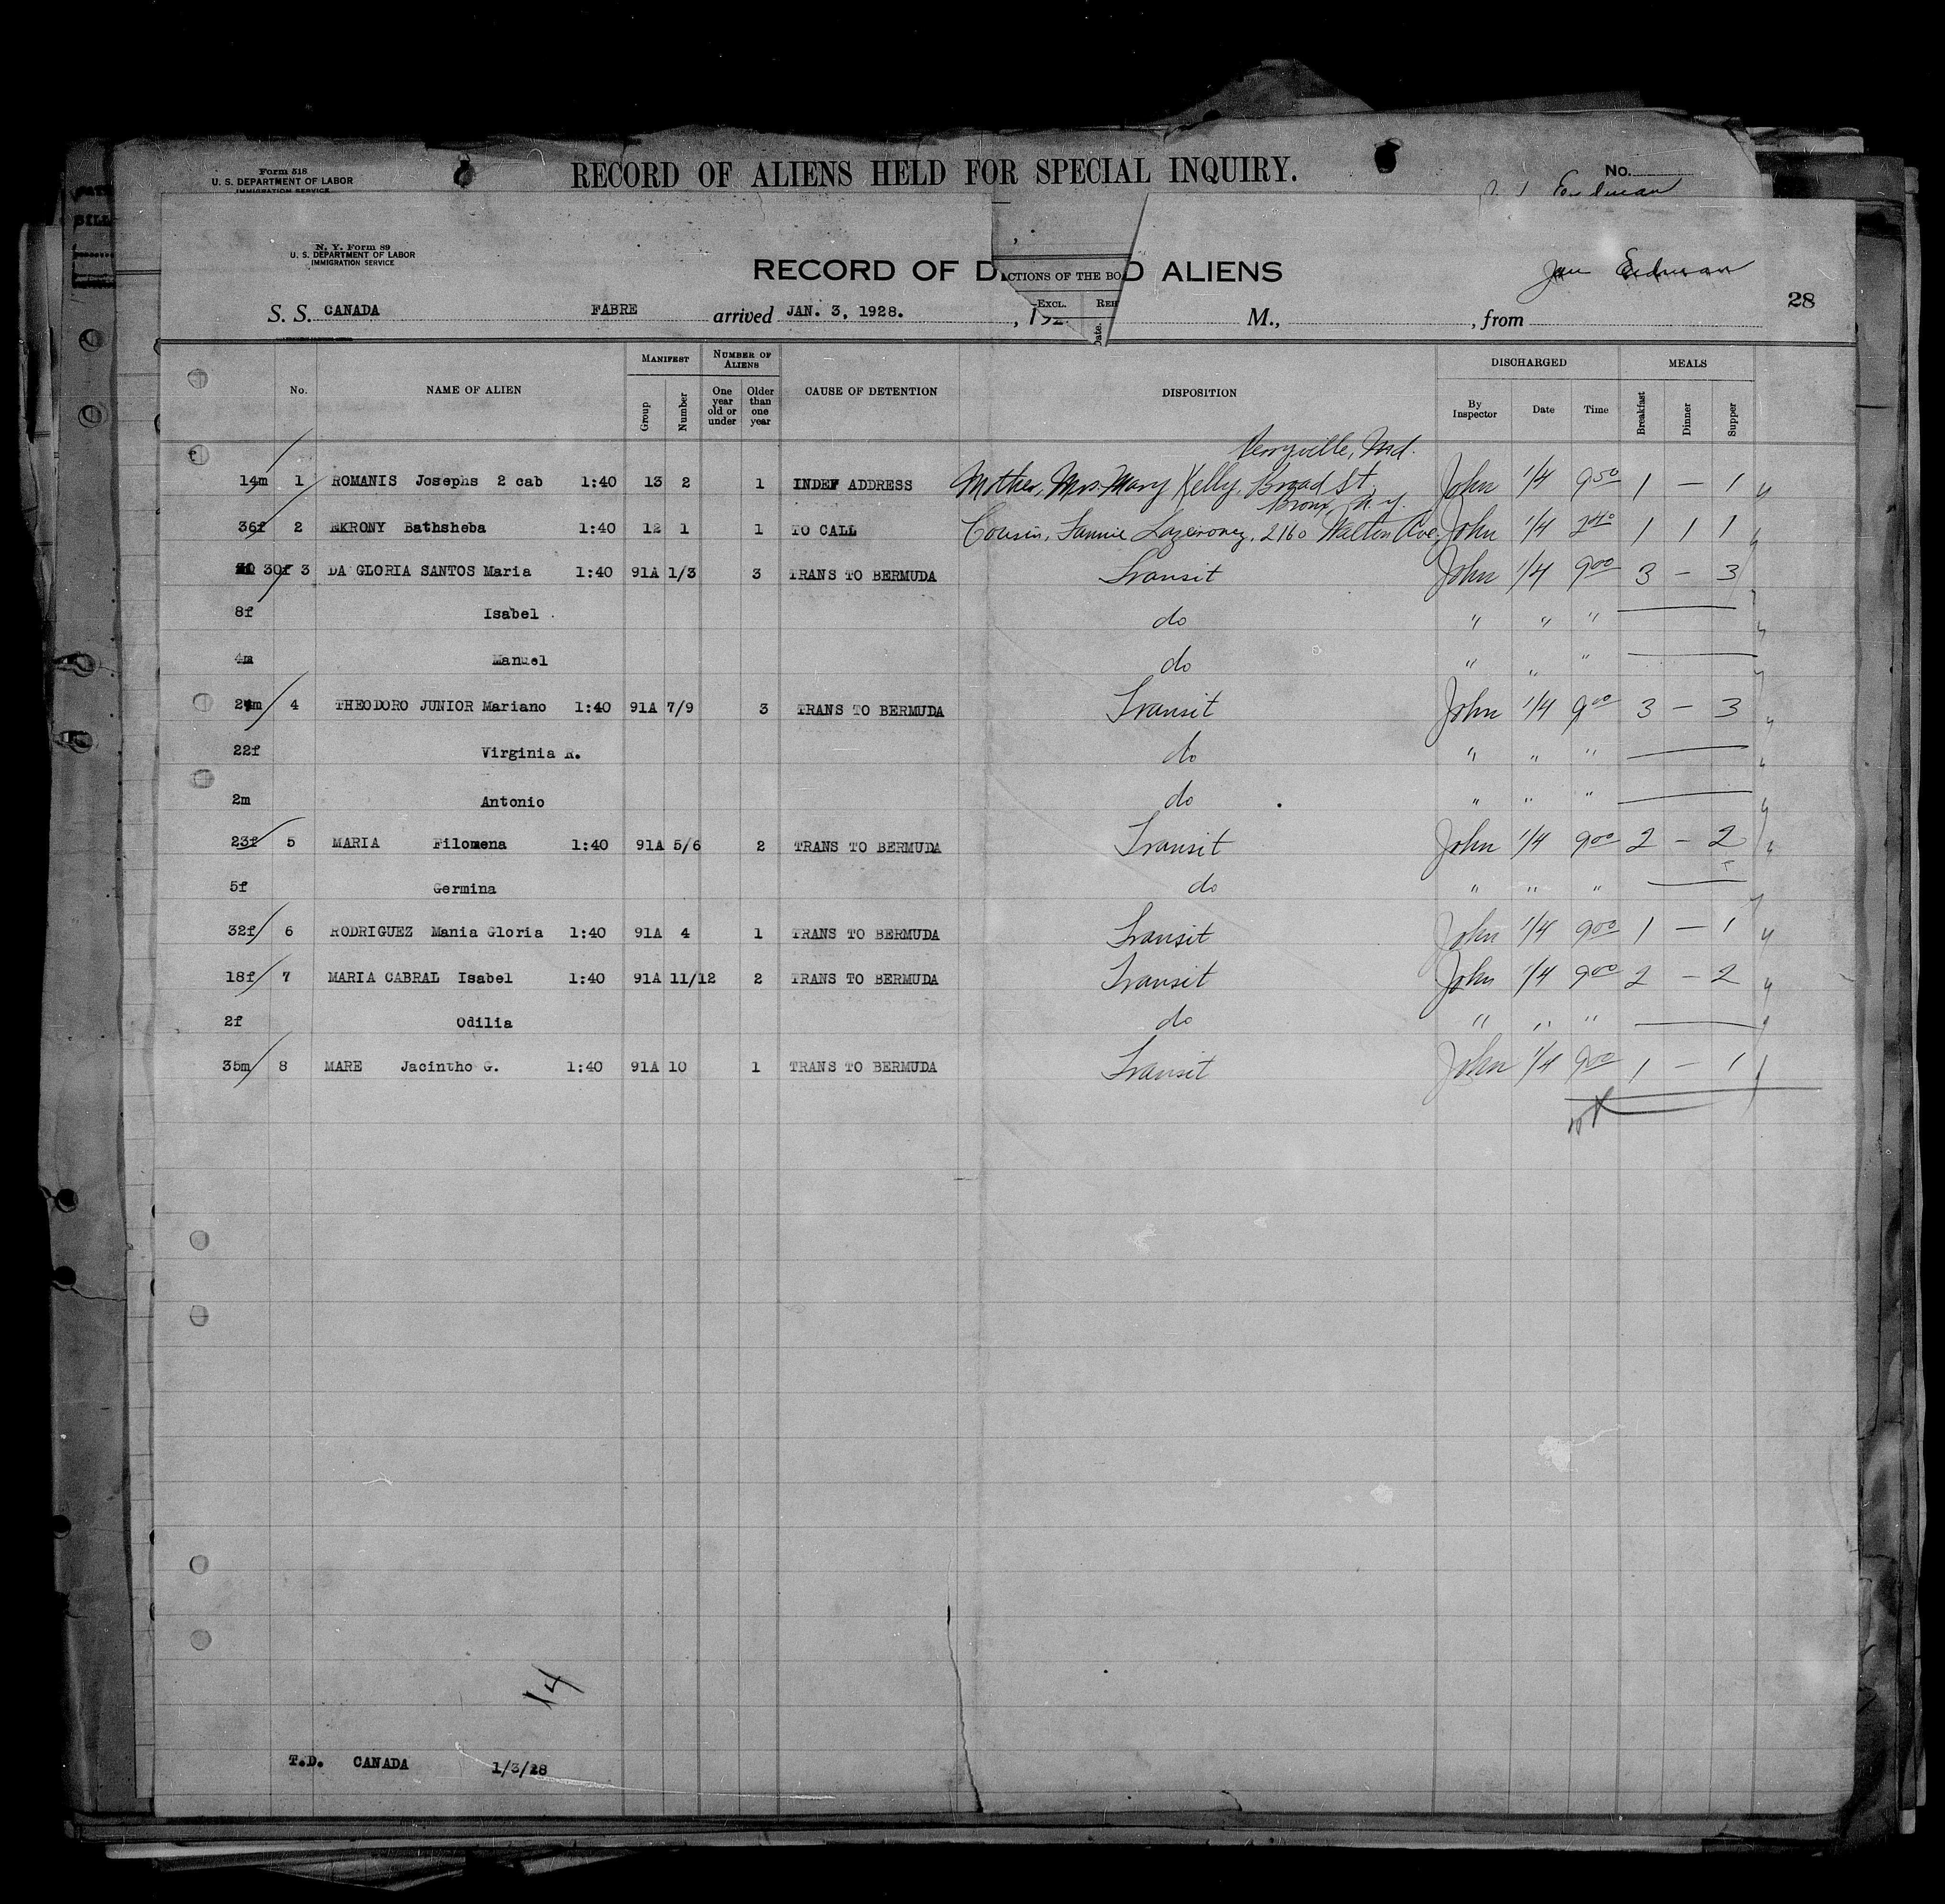 Form 518
U. S. DEPARTMENT OF LABOR
IMMIGRATION SERVICE
RECORD OF ALIENS HELD FOR SPECIAL INQUIRY.
No.
BILL
N. Y. Form 89
U. S. DEPARTMENT OF LABOR
IMMIGRATION SERVICE
RECORD OF D
CTIONS OF THE BO
D ALIENS
28
EXCL. REH
Date.
S. S. CANADA FABRE arrived JAN. 3, 1928. , 192 M., , from
No. NAME OF ALIEN MANIFEST Group Number NUMBER OF ALIENS One year old or under Older than one year CAUSE OF DETENTION DISPOSITION DISCHARGED By Inspector Date Time MEALS Breakfast Dinner Supper
Perryville, Md.
14m 1 ROMANIS Josephs 2 cab 1:40 13 2 1 INDEF ADDRESS Mother, Mrs. Mary Kelly, Broad St. John 1/4 9 50 1 — 1
Bronx, N.Y.
36f 2 EKRONY Bathsheba 1:40 12 1 1 TO CALL Cousin, Fannie 2160 Walton Ave. John 1/4 2 40 1 1 1
30f 3 DA GLORIA SANTOS Maria 1:40 91A 1/3 3 TRANS TO BERMUDA Transit John 1/4 9 00 3 — 3
8f Isabel do " " "
4m Manuel do " " "
24m 4 THEODORO JUNIOR Mariano 1:40 91A 7/9 3 TRANS TO BERMUDA Transit John 1/4 9 00 3 — 3
22f Virginia R. do " " "
2m Antonio do " " "
23f 5 MARIA Filomena 1:40 91A 5/6 2 TRANS TO BERMUDA Transit John 1/4 9 00 2 — 2
5f Germina do " " "
32f 6 RODRIGUEZ Mania Gloria 1:40 91A 4 1 TRANS TO BERMUDA Transit John 1/4 9 00 1 — 1
18f 7 MARIA CABRAL Isabel 1:40 91A 11/12 2 TRANS TO BERMUDA Transit John 1/4 9 00 2 — 2
2f Odilia do " " "
35m 8 MARE Jacintho G. 1:40 91A 10 1 TRANS TO BERMUDA Transit John 1/4 9 00 1 — 1
14
T.D. CANADA 1/3/28